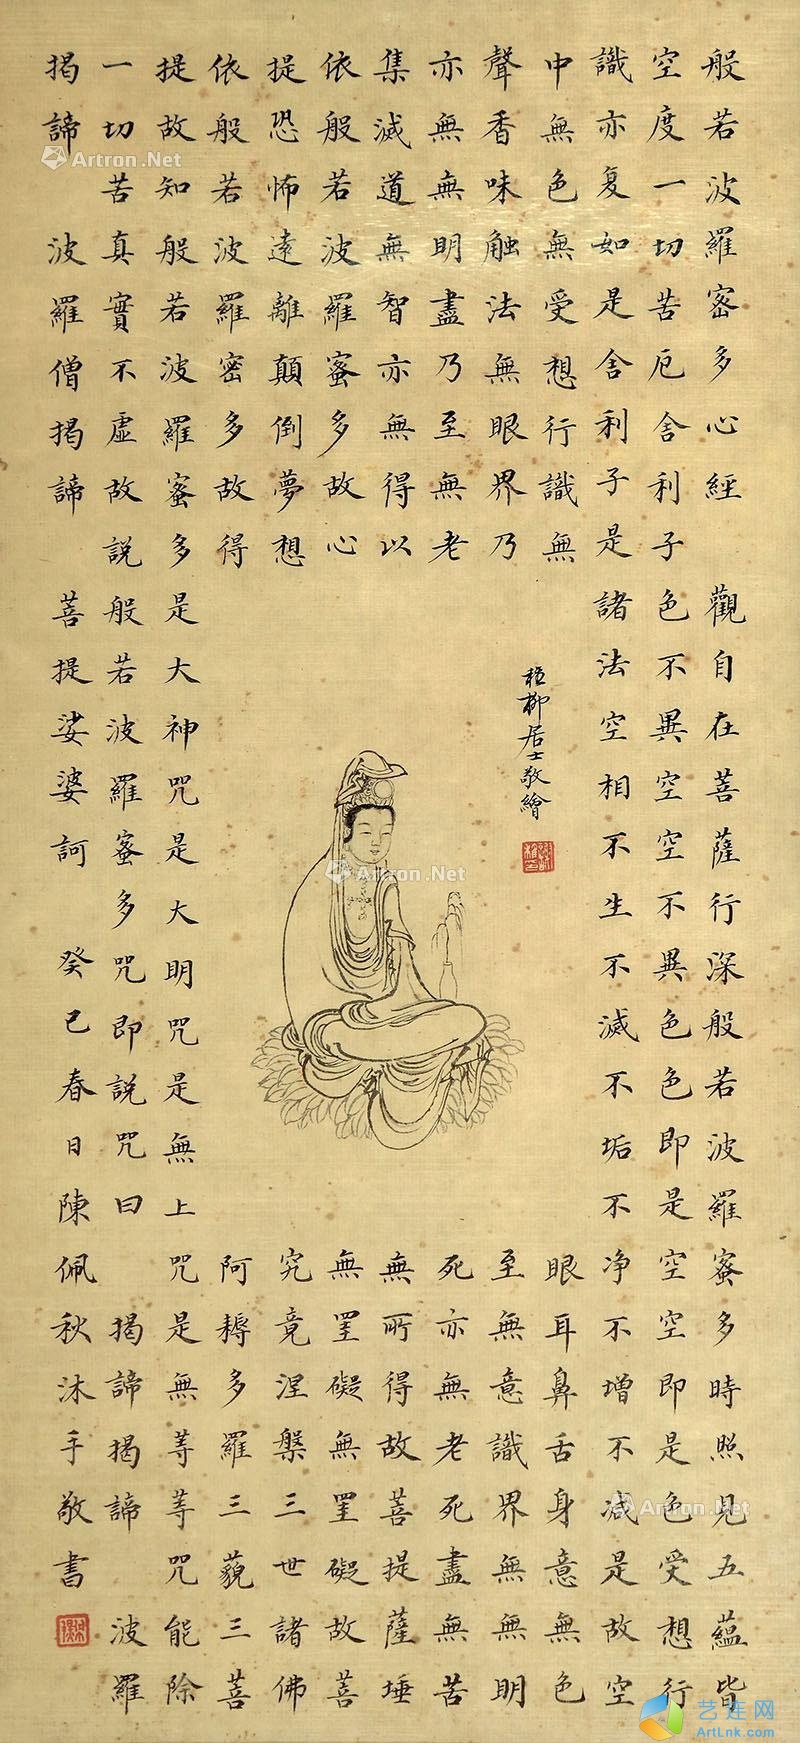 般若波羅密多心經 觀自在菩薩行深般若波羅蜜多時照見五蘊皆
空度一切苦厄舍利子色不異空空不異色色即是空空即是色受想行
識亦复如是舍利子是諸法空相不生不滅不垢不净不增不减是故空
中無色無受想行識無眼耳鼻舌身意無色
聲香味触法無眼界乃至無意識界無無明
亦無無明盡乃至無老死亦無老死盡無苦
集滅道無智亦無得以無所得故菩提薩埵
依般若波羅蜜多故心無罣礙無罣礙故菩
提恐怖遠離顛倒夢想究竟涅槃三世諸佛
依般若波羅密多故得阿耨多羅三藐三菩
提故知般若波羅蜜多是大神咒是大明咒是無上咒是無等等咒能除
一切苦真實不虛故説般若波羅蜜多咒即説咒曰 揭諦揭諦 波羅
揭諦 波羅僧揭諦 菩提娑婆訶 癸巳春日陳佩秋沐手敬書
稚柳居士敬繪
Artron.Net
Artron.Net
Artron.Net
艺连网
ArtLnk.com